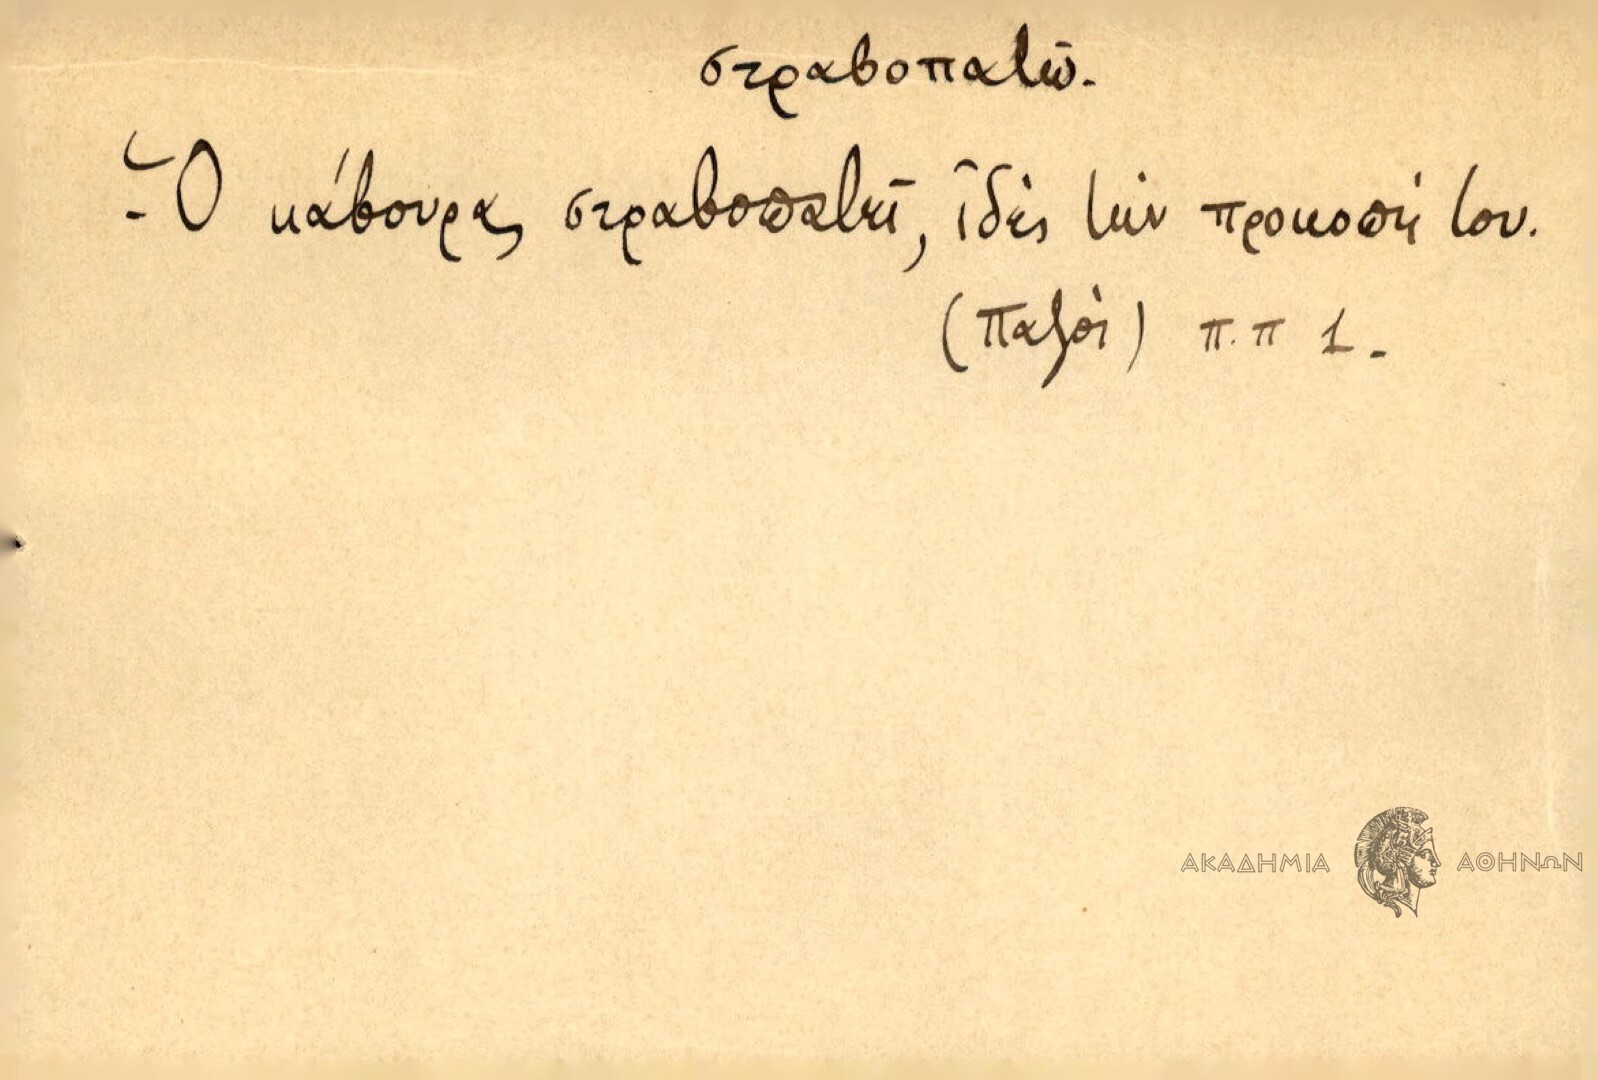 στραβοπατῶ.
- Ὁ κάβουρας στραβοπατεῖ, ἰδὲς τὴν προκοπή του.
(Παξοὶ) π.π 1.-
ΑΚΑΔΗΜΙΑ ΑΘΗΝΩΝ